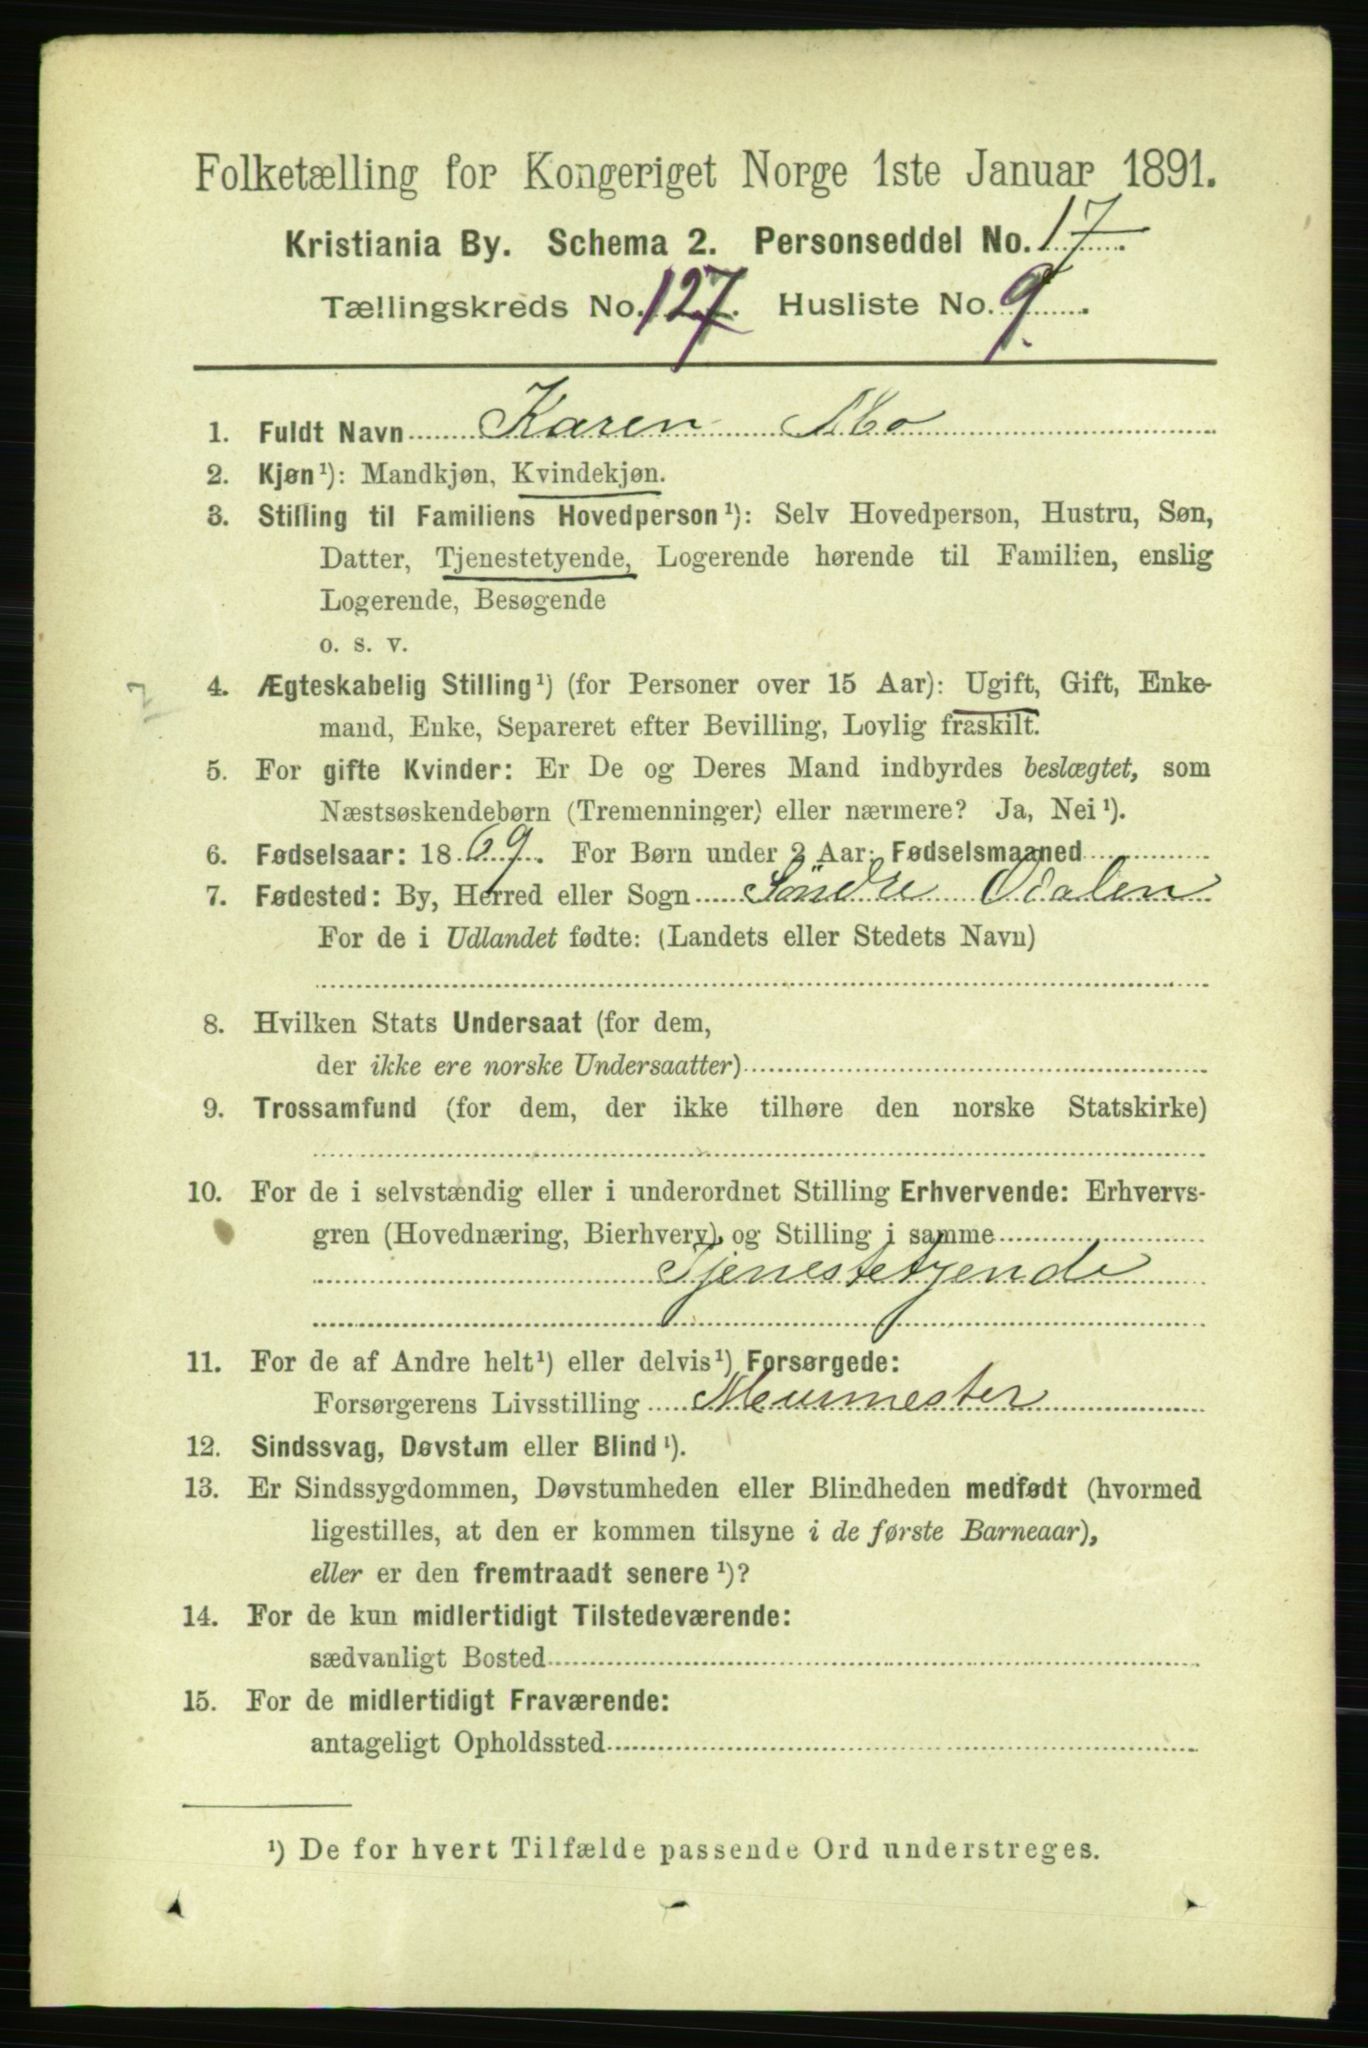 Folketælling for Kongeriget Norge 1ste Januar 1891.
Kristiania By. Schema 2. Personseddel No. 17.
Tællingskreds No. 127. Husliste No. 9.
1. Fuldt Navn Karen Mo
2. Kjøn¹): Mandkjøn, Kvindekjøn.
3. Stilling til Familiens Hovedperson¹): Selv Hovedperson, Hustru, Søn,
Datter, Tjenestetyende, Logerende hørende til Familien, enslig
Logerende, Besøgende
o. s. v.
4. Ægteskabelig Stilling¹) (for Personer over 15 Aar): Ugift, Gift, Enke-
mand, Enke, Separeret efter Bevilling, Lovlig fraskilt.
5. For gifte Kvinder: Er De og Deres Mand indbyrdes beslægtet, som
Næstsøskendebørn (Tremenninger) eller nærmere? Ja, Nei¹).
6. Fødselsaar: 1869. For Børn under 2 Aar: Fødselsmaaned
7. Fødested: By, Herred eller Sogn Söndre Odalen
For de i Udlandet fødte: (Landets eller Stedets Navn)
8. Hvilken Stats Undersaat (for dem,
der ikke ere norske Undersaatter)
9. Trossamfund (for dem, der ikke tilhøre den norske Statskirke)
10. For de i selvstændig eller i underordnet Stilling Erhvervende: Erhvervs-
gren (Hovednæring, Bierhverv) og Stilling i samme
Tjenestetyende
11. For de af Andre helt¹) eller delvis¹) Forsørgede:
Forsørgerens Livsstilling Muurmester
12. Sindssvag, Døvstum eller Blind¹).
13. Er Sindssygdommen, Døvstumheden eller Blindheden medfødt (hvormed
ligestilles, at den er kommen tilsyne i de første Barneaar),
eller er den fremtraadt senere¹)?
14. For de kun midlertidigt Tilstedeværende:
sædvanligt Bosted
15. For de midlertidigt Fraværende:
antageligt Opholdssted
¹) De for hvert Tilfælde passende Ord understreges.